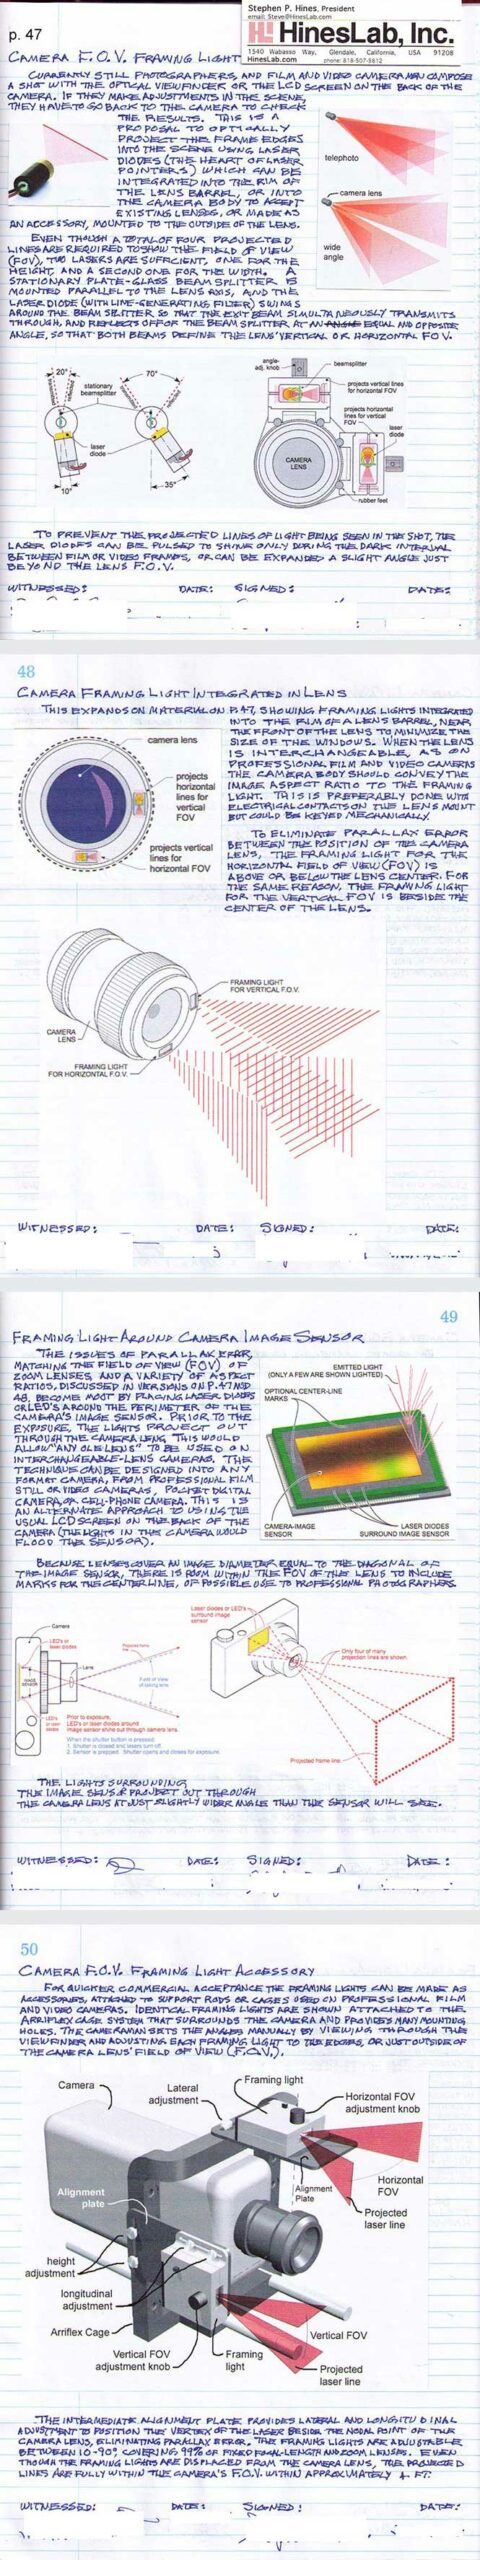 Stephen P. Hines, President
email: Steve@HinesLab.com
HL HinesLab, Inc.
1540 Wabasso Way, Glendale, California, USA 91208
HinesLab.com phone: 818-507-5812
p. 47
CAMERA F.O.V. FRAMING LIGHT
CURRENTLY STILL PHOTOGRAPHERS, AND FILM AND VIDEO CAMERAMEN COMPOSE
A SHOT WITH THE OPTICAL VIEWFINDER OR THE LCD SCREEN ON THE BACK OF THE
CAMERA. IF THEY MAKE ADJUSTMENTS IN THE SCENE,
THEY HAVE TO GO BACK TO THE CAMERA TO CHECK
THE RESULTS. THIS IS A
PROPOSAL TO OPTICALLY
PROJECT THE FRAME EDGES
INTO THE SCENE USING LASER
DIODES (THE HEART OF LASER
POINTERS) WHICH CAN BE
INTEGRATED INTO THE RIM OF
THE LENS BARREL, OR INTO
THE CAMERA BODY TO ACCEPT
EXISTING LENSES, OR MADE AS
AN ACCESSORY, MOUNTED TO THE OUTSIDE OF THE LENS.
telephoto
camera lens
wide
angle
EVEN THOUGH A TOTAL OF FOUR PROJECTED
LINES ARE REQUIRED TO SHOW THE FIELD OF VIEW
(FOV), TWO LASERS ARE SUFFICIENT, ONE FOR THE
HEIGHT, AND A SECOND ONE FOR THE WIDTH. A
STATIONARY PLATE-GLASS BEAM SPLITTER IS
MOUNTED PARALLEL TO THE LENS AXIS, AND THE
LASER DIODE (WITH LINE-GENERATING FILTER) SWINGS
AROUND THE BEAM SPLITTER SO THAT THE EXIT BEAM SIMULTANEOUSLY TRANSMITS
THROUGH, AND REFLECTS OFF OF THE BEAM SPLITTER AT AN ANGLE EQUAL AND OPPOSITE
ANGLE, SO THAT BOTH BEAMS DEFINE THE LENS' VERTICAL OR HORIZONTAL FOV.
20°
70°
stationary
beamsplitter
laser
diode
10°
35°
angle-
adj. knob
beamsplitter
projects vertical lines
for horizontal FOV
projects horizontal
lines for vertical
FOV
laser
diode
CAMERA
LENS
rubber feet
TO PREVENT THE PROJECTED LINES OF LIGHT BEING SEEN IN THE SHOT, THE
LASER DIODES CAN BE PULSED TO SHINE ONLY DURING THE DARK INTERVAL
BETWEEN FILM OR VIDEO FRAMES, OR CAN BE EXPANDED A SLIGHT ANGLE JUST
BEYOND THE LENS F.O.V.
WITNESSED: DATE: SIGNED: DATE:
48
CAMERA FRAMING LIGHT INTEGRATED IN LENS
THIS EXPANDS ON MATERIAL ON P.47, SHOWING FRAMING LIGHTS INTEGRATED
INTO THE RIM OF A LENS BARREL, NEAR
THE FRONT OF THE LENS TO MINIMIZE THE
SIZE OF THE WINDOWS. WHEN THE LENS
IS INTERCHANGEABLE, AS ON
PROFESSIONAL FILM AND VIDEO CAMERAS
THE CAMERA BODY SHOULD CONVEY THE
IMAGE ASPECT RATIO TO THE FRAMING
LIGHT. THIS IS PREFERABLY DONE WITH
ELECTRICAL CONTACTS ON THE LENS MOUNT
BUT COULD BE KEYED MECHANICALLY.
camera lens
projects
horizontal
lines for
vertical
FOV
projects vertical
lines for
horizontal FOV
TO ELIMINATE PARALLAX ERROR
BETWEEN THE POSITION OF THE CAMERA
LENS, THE FRAMING LIGHT FOR THE
HORIZONTAL FIELD OF VIEW (FOV) IS
ABOVE OR BELOW THE LENS CENTER. FOR
THE SAME REASON, THE FRAMING LIGHT
FOR THE VERTICAL FOV IS BESIDE THE
CENTER OF THE LENS.
FRAMING LIGHT
FOR VERTICAL F.O.V.
CAMERA
LENS
FRAMING LIGHT
FOR HORIZONTAL F.O.V.
WITNESSED: DATE: SIGNED: DATE:
49
FRAMING LIGHT AROUND CAMERA IMAGE SENSOR
THE ISSUES OF PARALLAX ERROR,
MATCHING THE FIELD OF VIEW (FOV) OF
ZOOM LENSES, AND A VARIETY OF ASPECT
RATIOS, DISCUSSED IN VERSIONS ON P. 47 AND
48, BECOME MOOT BY PLACING LASER DIODES
OR LED'S AROUND THE PERIMETER OF THE
CAMERA'S IMAGE SENSOR. PRIOR TO THE
EXPOSURE, THE LIGHTS PROJECT OUT
THROUGH THE CAMERA LENS. THIS WOULD
ALLOW "ANY OLE LENS" TO BE USED ON
INTERCHANGEABLE-LENS CAMERAS. THE
TECHNIQUE CAN BE DESIGNED INTO ANY
FORMAT CAMERA, FROM PROFESSIONAL FILM
STILL OR VIDEO CAMERAS, POCKET DIGITAL
CAMERA, OR CELL-PHONE CAMERA. THIS IS
AN ALTERNATE APPROACH TO USING THE
USUAL LCD SCREEN ON THE BACK OF THE
CAMERA (THE LIGHTS IN THE CAMERA WOULD
FLOOD THE SENSOR).
EMITTED LIGHT
(ONLY A FEW ARE SHOWN LIGHTED)
OPTIONAL CENTER-LINE
MARKS
CAMERA-IMAGE
SENSOR
LASER DIODES
SURROUND IMAGE SENSOR
BECAUSE LENSES COVER AN IMAGE DIAMETER EQUAL TO THE DIAGONAL OF
THE IMAGE SENSOR, THERE IS ROOM WITHIN THE FOV OF THE LENS TO INCLUDE
MARKS FOR THE CENTERLINE, OF POSSIBLE USE TO PROFESSIONAL PHOTOGRAPHERS.
Camera
LED's or
laser diodes
Projected frame line
Lens
IMAGE
SENSOR
Field of View
of taking lens
LED's
or laser
diodes
Prior to exposure,
LED's or laser diodes around
image sensor shine out through camera lens.
When the shutter button is pressed:
1. Shutter is closed and lasers turn off.
2. Sensor is prepped. Shutter opens and closes for exposure.
Laser diodes or LED's
surround image
sensor
Only four of many
projection lines are shown.
Projected frame line.
THE LIGHTS SURROUNDING
THE IMAGE SENSOR PROJECT OUT THROUGH
THE CAMERA LENS AT JUST SLIGHTLY WIDER ANGLE THAN THE SENSOR WILL SEE.
WITNESSED: DATE: SIGNED: DATE:
50
CAMERA F.O.V. FRAMING LIGHT ACCESSORY
FOR QUICKER COMMERCIAL ACCEPTANCE THE FRAMING LIGHTS CAN BE MADE AS
ACCESSORIES, ATTACHED TO SUPPORT RODS OR CAGES USED ON PROFESSIONAL FILM
AND VIDEO CAMERAS. IDENTICAL FRAMING LIGHTS ARE SHOWN ATTACHED TO THE
ARRIFLEX CAGE SYSTEM THAT SURROUNDS THE CAMERA AND PROVIDES MANY MOUNTING
HOLES. THE CAMERAMAN SETS THE ANGLES MANUALLY BY VIEWING THROUGH THE
VIEWFINDER AND ADJUSTING EACH FRAMING LIGHT TO THE EDGES, OR JUST OUTSIDE OF
THE CAMERA LENS' FIELD OF VIEW (F.O.V.).
Camera
Lateral
adjustment
Framing light
Horizontal FOV
adjustment knob
Alignment
Plate
Horizontal
FOV
Projected
laser line
Alignment
plate
height
adjustment
longitudinal
adjustment
Arriflex Cage
Vertical FOV
adjustment knob
Framing
light
Vertical FOV
Projected
laser line
THE INTERMEDIATE ALIGNMENT PLATE PROVIDES LATERAL AND LONGITUDINAL
ADJUSTMENT TO POSITION THE VERTEX OF THE LASER BESIDE THE NODAL POINT OF THE
CAMERA LENS, ELIMINATING PARALLAX ERROR. THE FRAMING LIGHTS ARE ADJUSTABLE
BETWEEN 10-90°, COVERING 99% OF FIXED FOCAL-LENGTH AND ZOOM LENSES. EVEN
THOUGH THE FRAMING LIGHTS ARE DISPLACED FROM THE CAMERA LENS, THE PROJECTED
LINES ARE FULLY WITHIN THE CAMERA'S F.O.V. WITHIN APPROXIMATELY 4 FT.
WITNESSED: DATE: SIGNED: DATE: